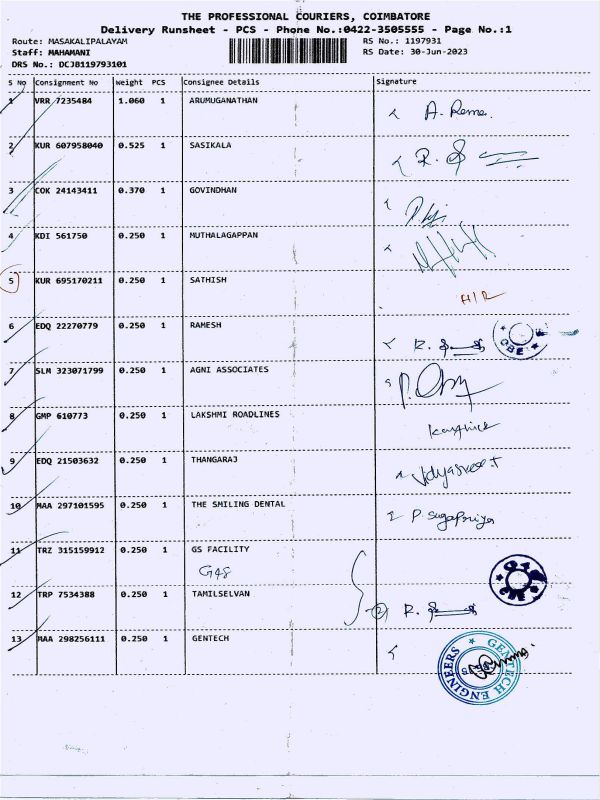 THE PROFESSIONAL COURIERS, COIMBATORE
Delivery Runsheet - PCS - Phone No.:0422-3505555 - Page No.:1
Route: MASAKALIPALAYAM RS No.: 1197931
Staff: MAHAMANI RS Date: 30-Jun-2023
DRS No.: DCJB119793101
S No Consignment No Weight PCS Consignee Details Signature
1 VRR 7235484 1.060 1 ARUMUGANATHAN
2 KUR 607958040 0.525 1 SASIKALA
3 COK 24143411 0.370 1 GOVINDHAN
4 KDI 561750 0.250 1 MUTHALAGAPPAN
5 KUR 695170211 0.250 1 SATHISH
6 EDQ 22270779 0.250 1 RAMESH
7 SLM 323071799 0.250 1 AGNI ASSOCIATES
8 GMP 610773 0.250 1 LAKSHMI ROADLINES
9 EDQ 21503632 0.250 1 THANGARAJ
10 MAA 297101595 0.250 1 THE SMILING DENTAL
P. Sugapriya
11 TRZ 315159912 0.250 1 GS FACILITY
G4S
12 TRP 7534388 0.250 1 TAMILSELVAN
13 MAA 298256111 0.250 1 GENTECH
GENTECH ENGINEERS